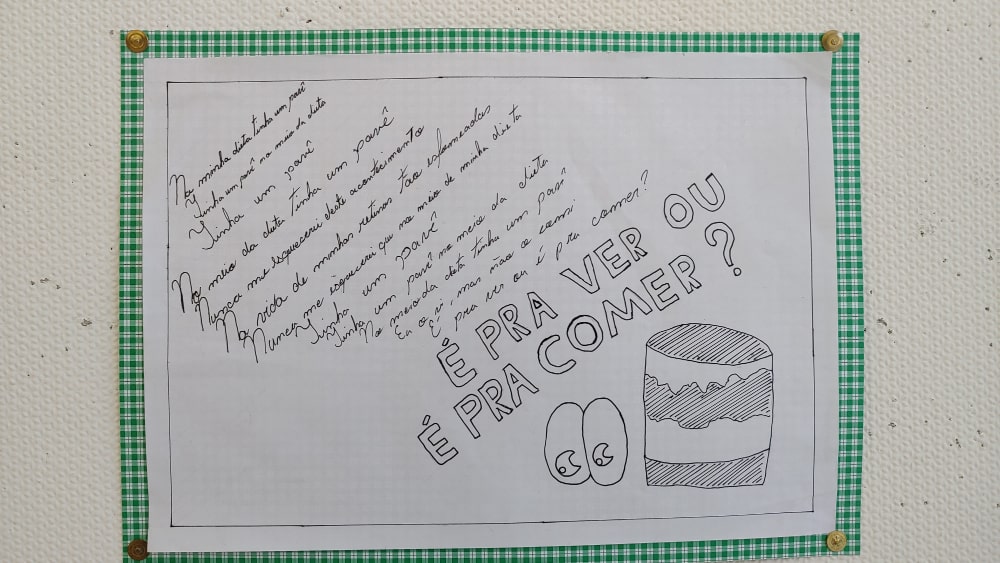 Na minha dieta tinha um pavê
Tinha um pavê no meio da dieta
Tinha um pavê
No meio da dieta tinha um pavê
Nunca me esquecerei deste acontecimento
Na vida de minhas retinas tão esfomeadas
Nunca me esquecerei que no meio de minha dieta
Tinha um pavê
Tinha um pavê no meio da dieta
No meio da dieta tinha um pavê
Eu o vi, mas não o comi
É pra ver ou é pra comer?
É PRA VER OU
É PRA COMER?